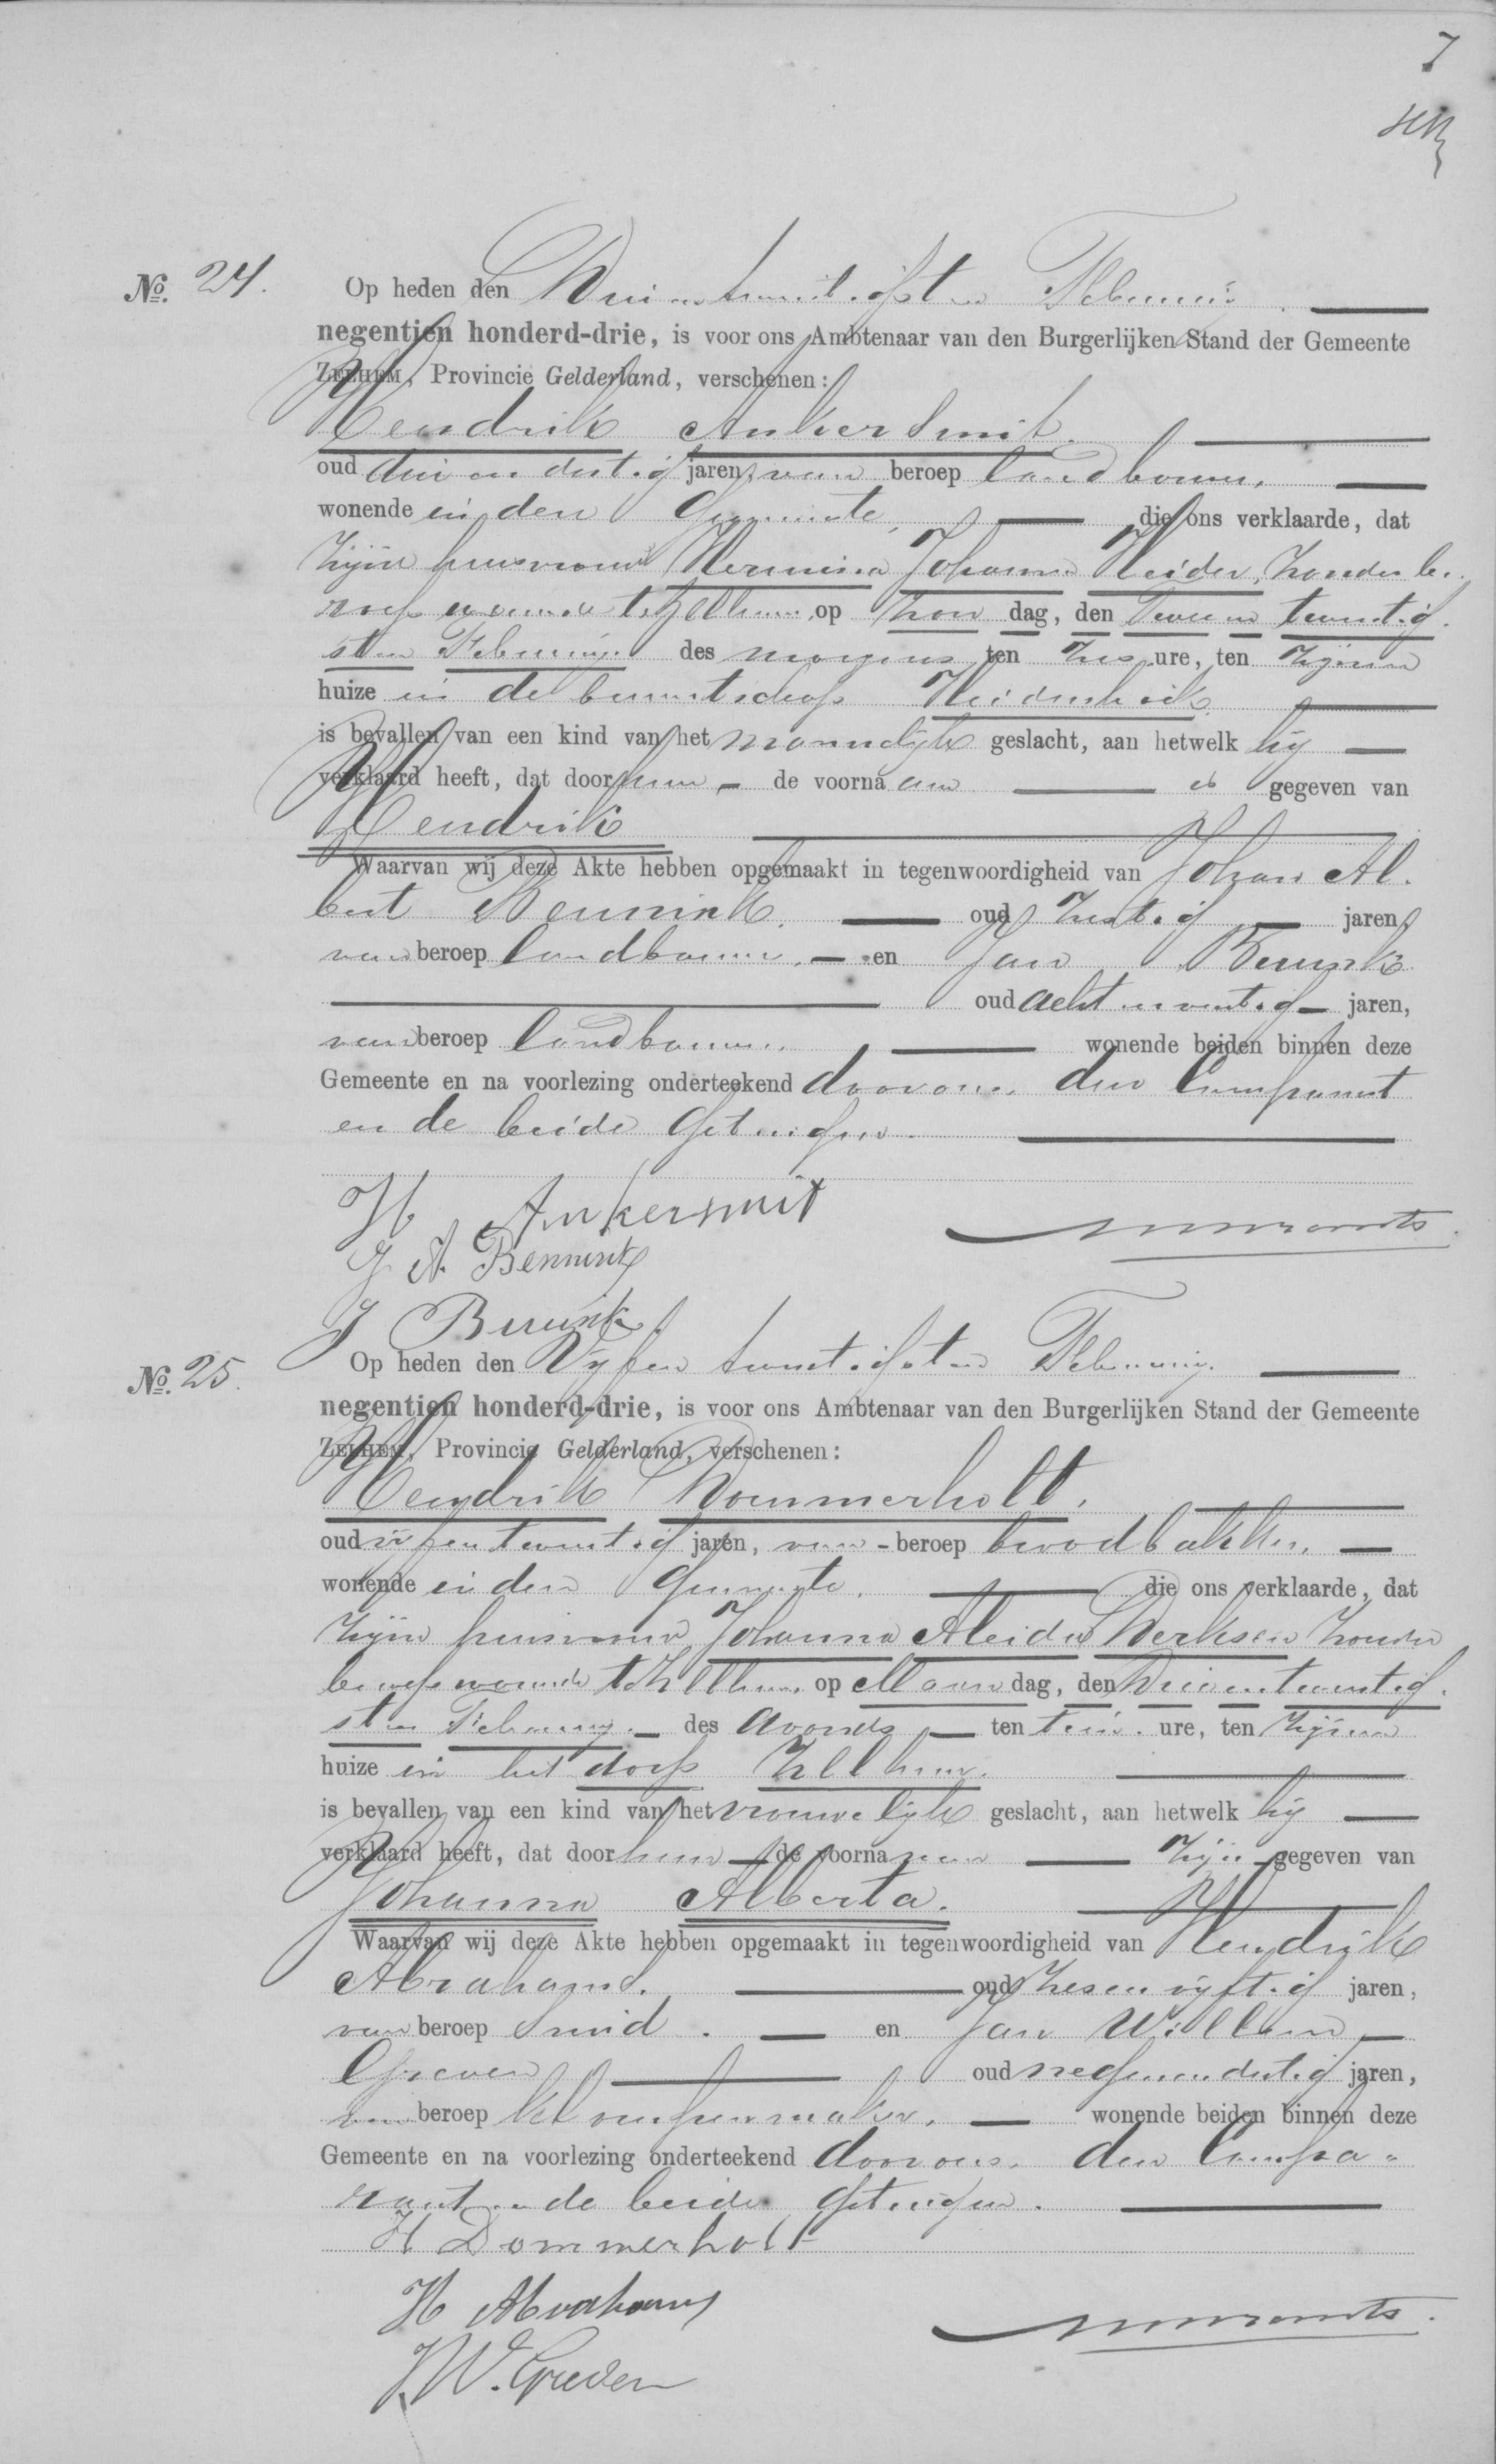 7
No. 24.
Op heden den Drieentwintigsten Februari
negentien honderd-drie, is voor ons Ambtenaar van den Burgerlijken Stand der Gemeente
ZELHEM, Provincie Gelderland, verschenen:
Hendrik Ankersmit.
oud drie en dertig jaren, van beroep landbouwer,
wonende in deze Gemeente, die ons verklaarde, dat
zijne huisvrouw Hermina Johanna Heider, zonder be-
roep wonende te Zelhem, op Zon dag, den Twee en twintig-
sten Februari des morgens ten zes ure, ten zijnen
huize in de buurtschap Heidenhoek
is bevallen van een kind van het mannelijk geslacht, aan hetwelk hij
verklaard heeft, dat door hem de voorna am is gegeven van
Hendrik
Waarvan wij deze Akte hebben opgemaakt in tegenwoordigheid van Johan Al-
bert Bennink, oud zestig jaren,
van beroep landbouwer, en Jan Buunk
oud acht en veertig jaren,
van beroep landbouwer, wonende beiden binnen deze
Gemeente en na voorlezing onderteekend door ons, den Comparant
en de beide Getuigen.
H Ankersmit
J A Bennink
J Buunk
No. 25.
Op heden den Vijfen twintigsten Februarij
negentien honderd-drie, is voor ons Ambtenaar van den Burgerlijken Stand der Gemeente
ZELHEM, Provincie Gelderland, verschenen:
Hendrik Dommerholt,
oud vijfentwintig jaren, van beroep broodbakker,
wonende in deze Gemeente, die ons verklaarde, dat
zijne huisvrouw Johanna Aleida Derksen zonder
beroep wonende te Zelhem, op Maan dag, den Drieentwintig-
sten Februarij des avonds ten tien ure, ten zijnen
huize in het dorp Zelhem.
is bevallen van een kind van het vrouwelijk geslacht, aan hetwelk hij
verklaard heeft, dat door hem de voorna men zijn gegeven van
Johanna Alberta.
Waarvan wij deze Akte hebben opgemaakt in tegenwoordigheid van Hendrik
Abrahams. oud zesenvijftig jaren,
van beroep Smid. en Jan Willem
Greven oud negenendertig jaren,
van beroep klompenmaker, wonende beiden binnen deze
Gemeente en na voorlezing onderteekend door ons, den Compa-
rant en de beide Getuigen.
H Dommerholt
H Abrahams
J.W. Greven